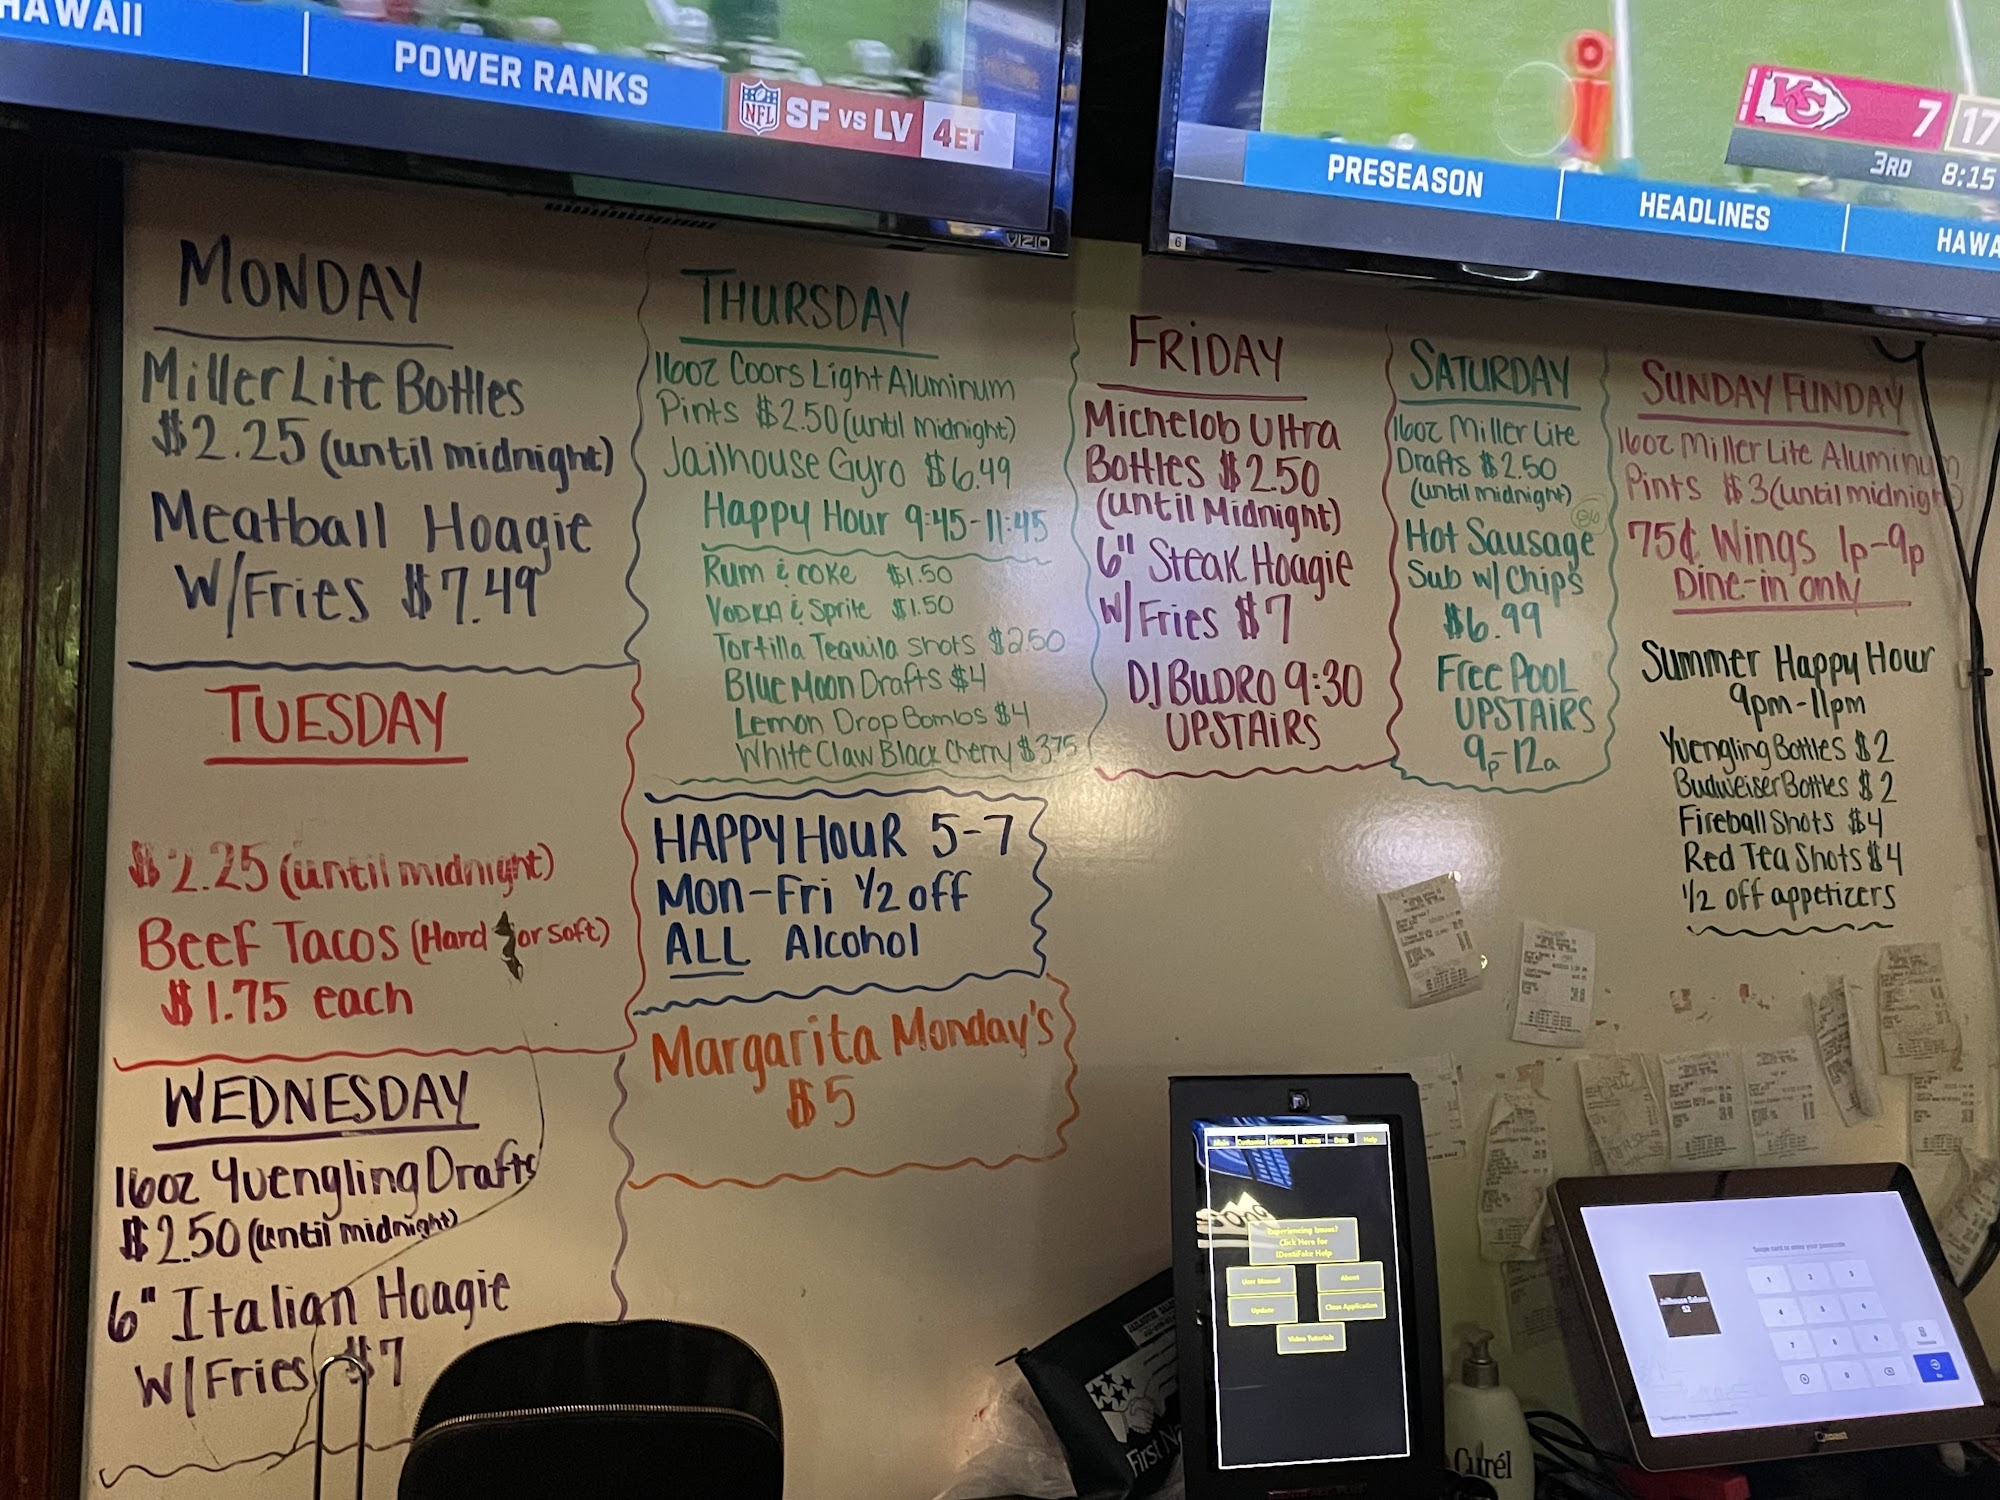 HAWAII
POWER RANKS
NFL SF VS LV 4ET
VIZIO
PRESEASON
HEADLINES
HAWA
KC 7 17
3RD 8:15
6
MONDAY
Miller Lite Bottles
$2.25 (until midnight)
Meatball Hoagie
W/Fries $7.49
TUESDAY
$2.25 (until midnight)
Beef Tacos (Hard or soft)
$1.75 each
WEDNESDAY
16oz Yuengling Drafts
$2.50 (until midnight)
6" Italian Hoagie
W/Fries $7
THURSDAY
16oz Coors Light Aluminum
Pints $2.50 (until midnight)
Jailhouse Gyro $6.49
Happy Hour 9:45-11:45
Rum & coke $1.50
Vodka & Sprite $1.50
Tortilla Tequila shots $2.50
Blue Moon Drafts $4
Lemon Drop Bombs $4
White Claw Black Cherry $3.75
HAPPY HOUR 5-7
Mon-Fri 1/2 off
ALL Alcohol
Margarita Monday's
$5
FRIDAY
Michelob Ultra
Bottles $2.50
(until Midnight)
6" Steak Hoagie
W/Fries $7
DJ BUDRO 9:30
UPSTAIRS
SATURDAY
16oz Miller Lite
Drafts $2.50
(until midnight)
Hot Sausage
Sub w/ Chips
$6.99
Free Pool
UPSTAIRS
9p-12a
SUNDAY FUNDAY
16oz Miller Lite Aluminum
Pints $3 (until midnight)
75¢ Wings 1p-9p
Dine-in only
Summer Happy Hour
9pm-11pm
Yuengling Bottles $2
Budweiser Bottles $2
Fireball Shots $4
Red Tea Shots $4
1/2 off appetizers
Main Customer Settings Forms Data Help
Experiencing Issues?
Click Here for
IDentiFake Help
User Manual About
Update Close Application
Video Tutorials
First N
Swipe card or enter your passcode
Jailhouse Saloon
S2
1 2 3
4 5 6
7 8 9
0
toast
Curél